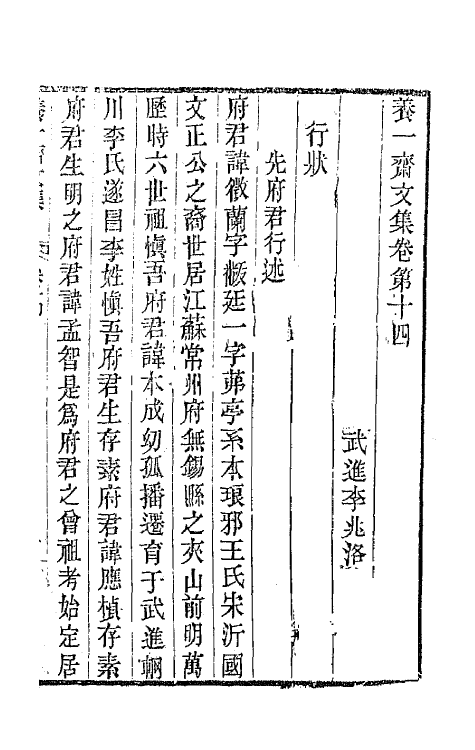 養一齋文集卷第十四
武進李兆洛
行狀
先府君行述
府君諱徵蘭字𦶜廷一字茀亭系本琅邪王氏宋沂國
文正公之裔世居江蘇常州府無錫縣之夾山前明萬
歷時六世祖愼吾府君諱本成幼孤播遷育于武進輞
川李氏遂冒李姓愼吾府君生存素府君諱應楨存素
府君生明之府君諱孟智是爲府君之曾祖考始定居